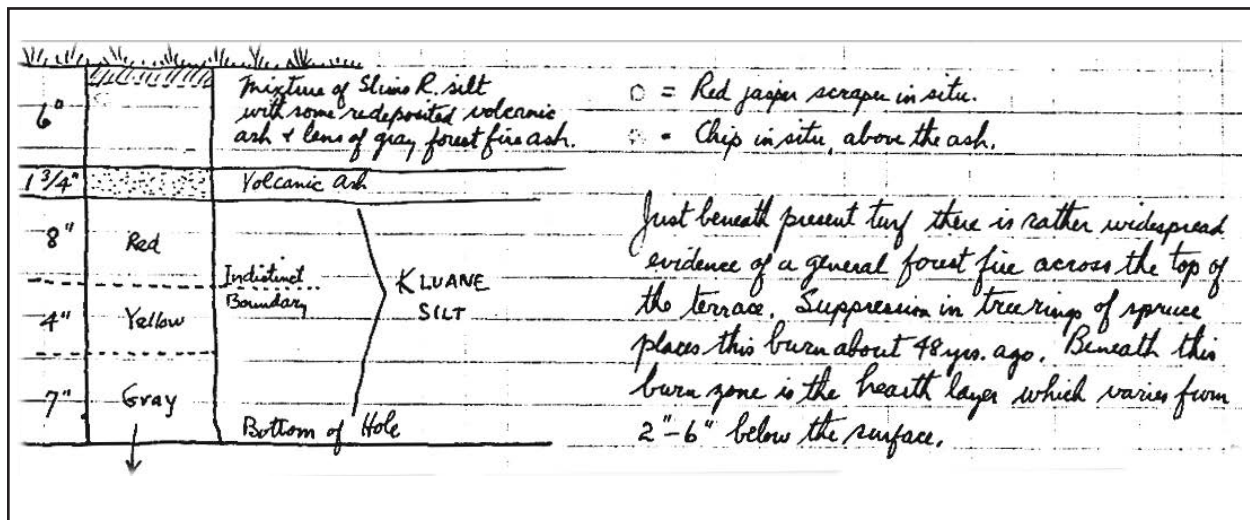 6"
Mixture of Slims R. silt
with some redeposited volcanic
ash + lens of gray forest fire ash.
1 3/4"
Volcanic Ash
8"
Red
Indistinct
Boundary
4"
Yellow
7"
Gray
KLUANE
SILT
Bottom of Hole
= Red jasper scraper in situ.
= Chip in situ, above the ash.
Just beneath present turf there is rather widespread
evidence of a general forest fire across the top of
the terrace. Suppression in tree rings of spruce
places this burn about 48 yrs. ago. Beneath this
burn zone is the hearth layer which varies from
2"-6" below the surface.